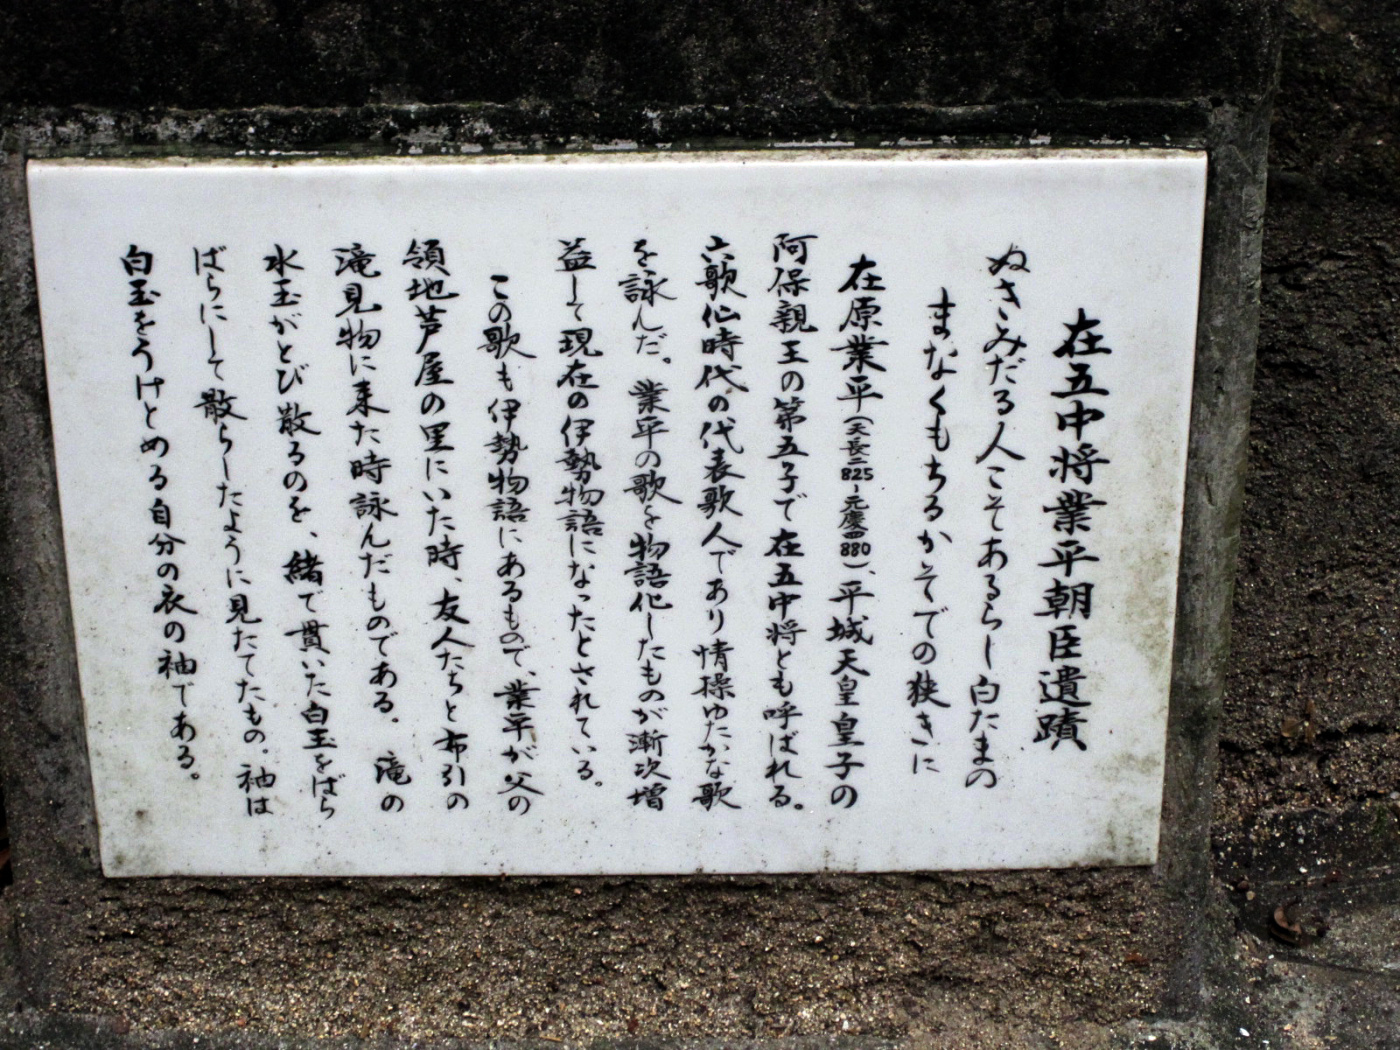 在五中将業平朝臣遺蹟
ぬきみだる人こそあるらし白たまの
まなくもちるかそでの狭きに
在原業平(天長二825-元慶四880)、平城天皇皇子の
阿保親王の第五子で在五中将とも呼ばれる。
六歌仙時代の代表歌人であり情操ゆたかな歌
を詠んだ。業平の歌を物語化したものが漸次増
益して現在の伊勢物語になったとされている。
この歌も伊勢物語にあるもので、業平が父の
領地芦屋の里にいた時、友人たちと布引の
滝見物に来た時詠んだものである。滝の
水玉がとび散るのを、緒で貫いた白玉をばら
ばらにして散らしたように見たてたもの。袖は
白玉をうけとめる自分の衣の袖である。